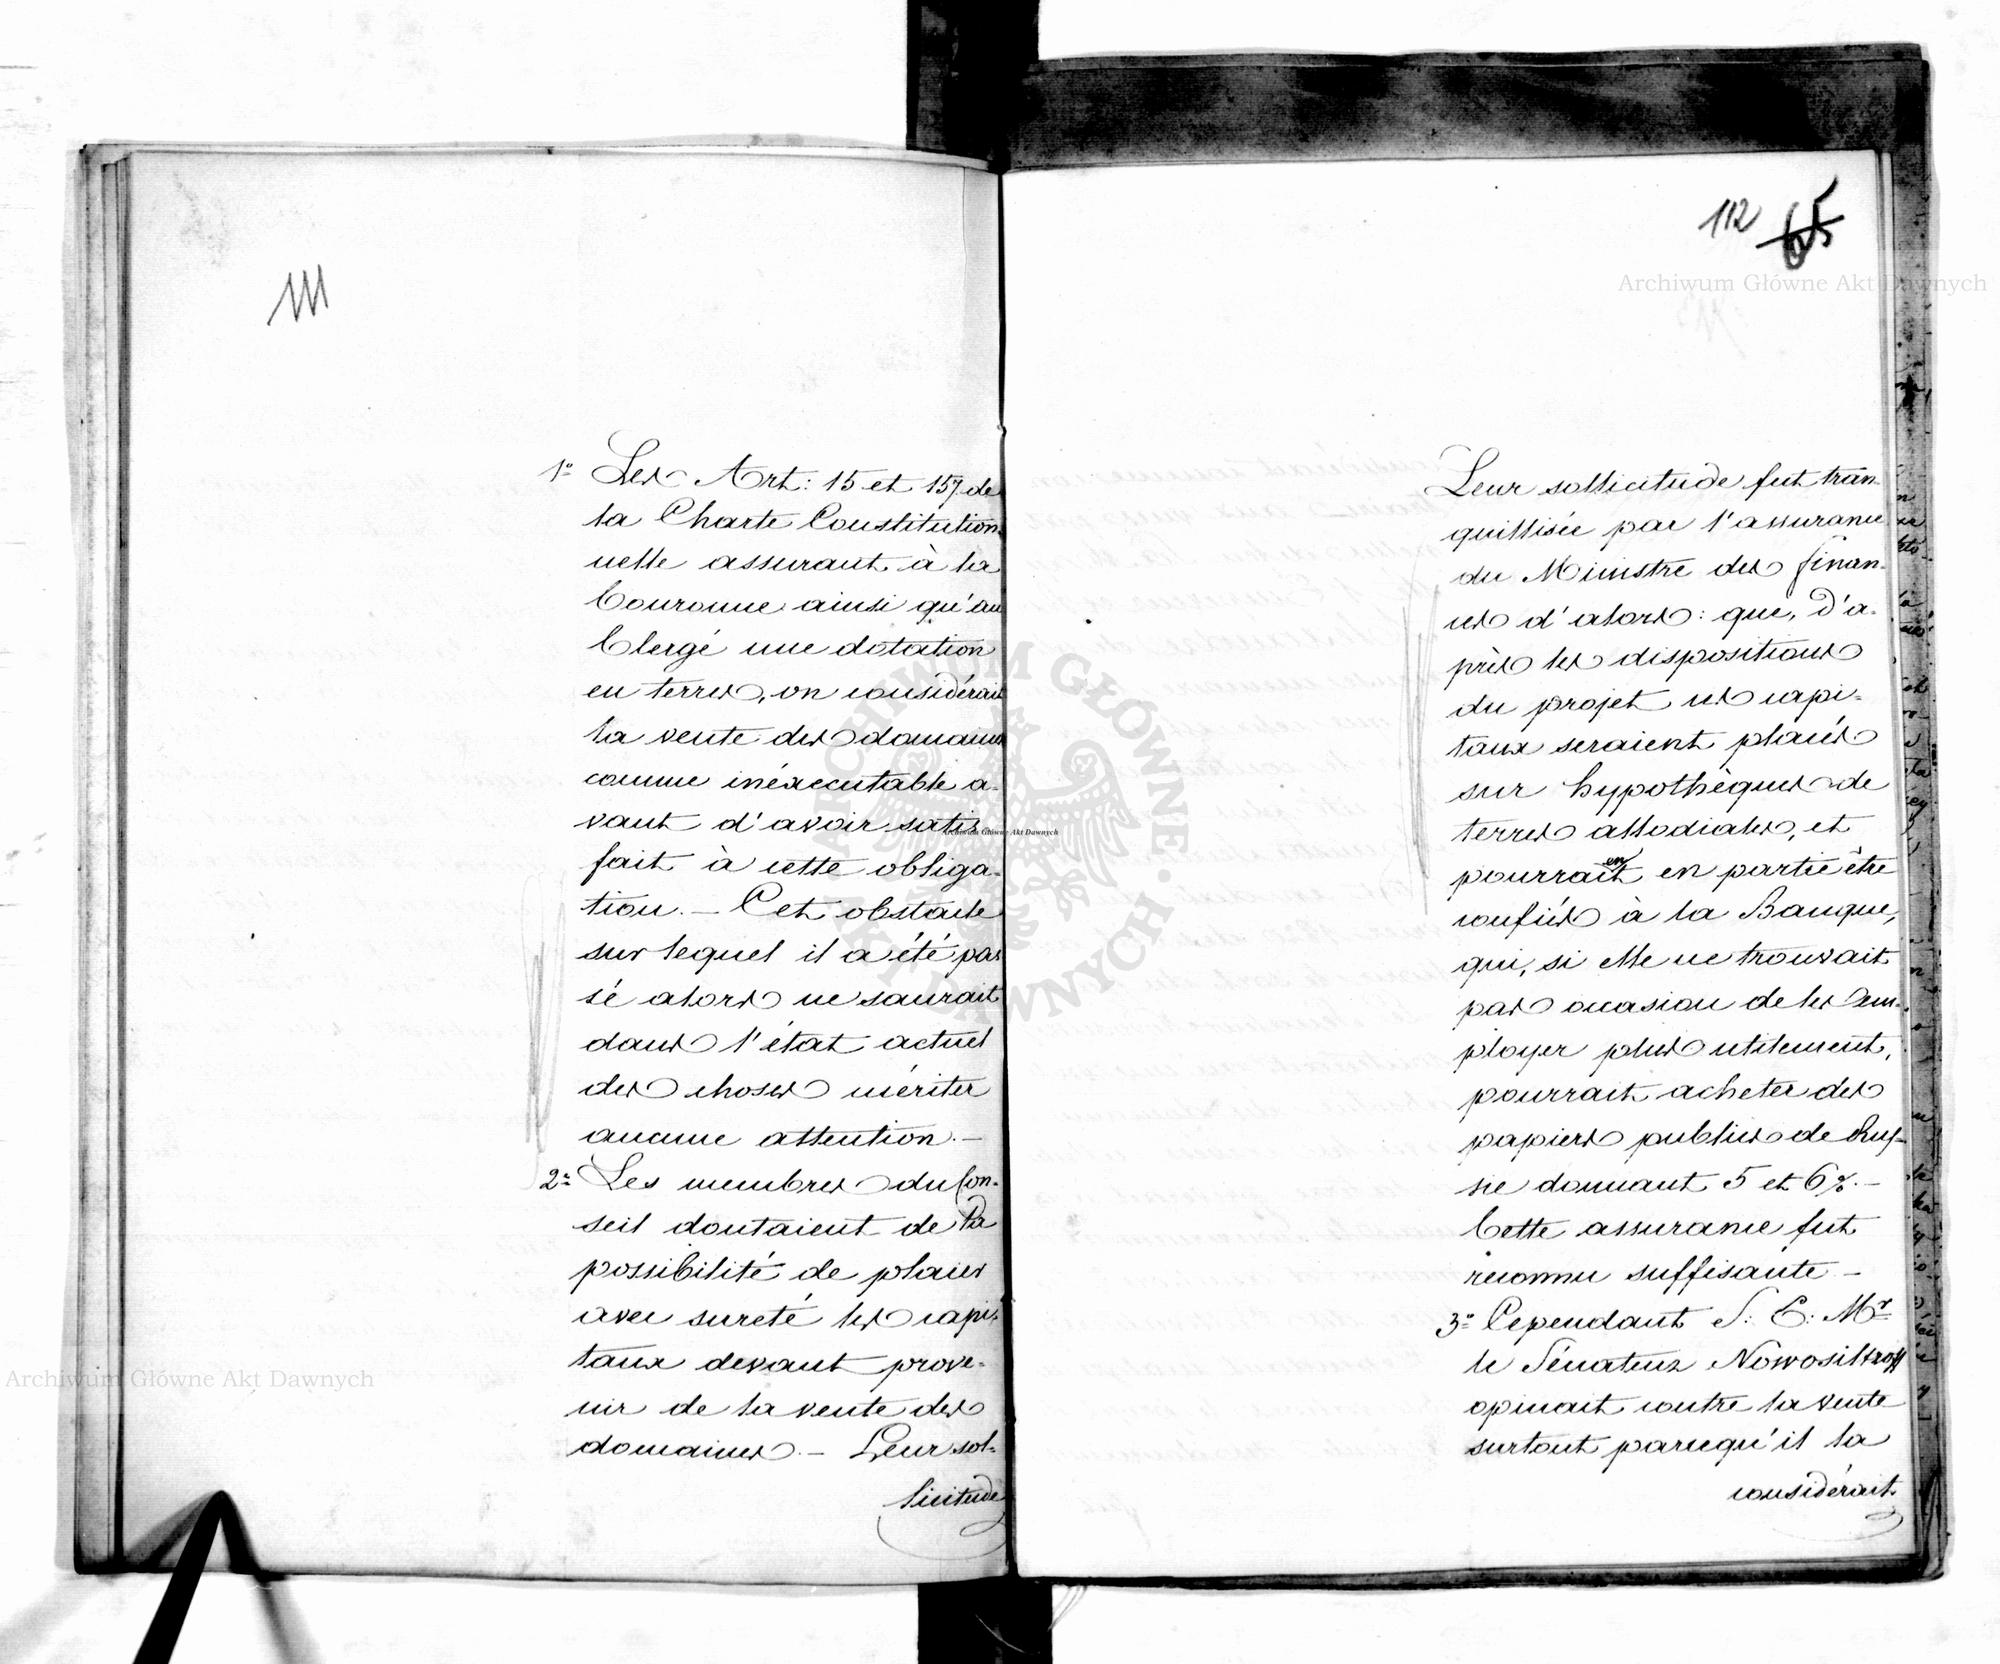 111
1º Les Art: 15 et 157 de
la Charte Constitution-
nelle assurant à la
Couronne ainsi qu'au
Clergé une dotation
en terres, on considérait
la vente des domaines
comme inéxecutable a-
vant d'avoir satis
fait à cette obliga-
tion. — Cet obstacle
sur lequel il a été pas
sé alors ne saurait
dans l'état actuel
des choses mériter
aucune attention. —
2º Les membres du Con-
seil doutaient de la
possibilité de placer
avec sureté les capi-
taux devant prove-
nir de la vente des
domaines. — Leur sol-
licitude
112 65
Leur sollicitude fut tran-
quillisée par l'assurance
du Ministre des finan-
ces d'alors: que, d'a-
près les dispositions
du projet ces capi-
taux seraient placés
sur hypothèques de
terres allodiales, et
en
pourrait en partie être
confiés à la Banque,
qui, si elle ne trouvait
pas occasion de les em-
ployer plus utilement,
pourrait acheter des
papiers publics de Rus-
sie donnant 5 et 6%. —
Cette assurance fut
reconnu suffisante —
3º Cependant S: E: Mr
le Sénateur Nowosiltzoff
opinait contre la vente
surtout parcequ'il la
considérait
Archiwum Główne Akt Dawnych
Archiwum Główne Akt Dawnych
Archiwum Główne Akt Dawnych
ARCHIWUM GŁÓWNE AKT DAWNYCH